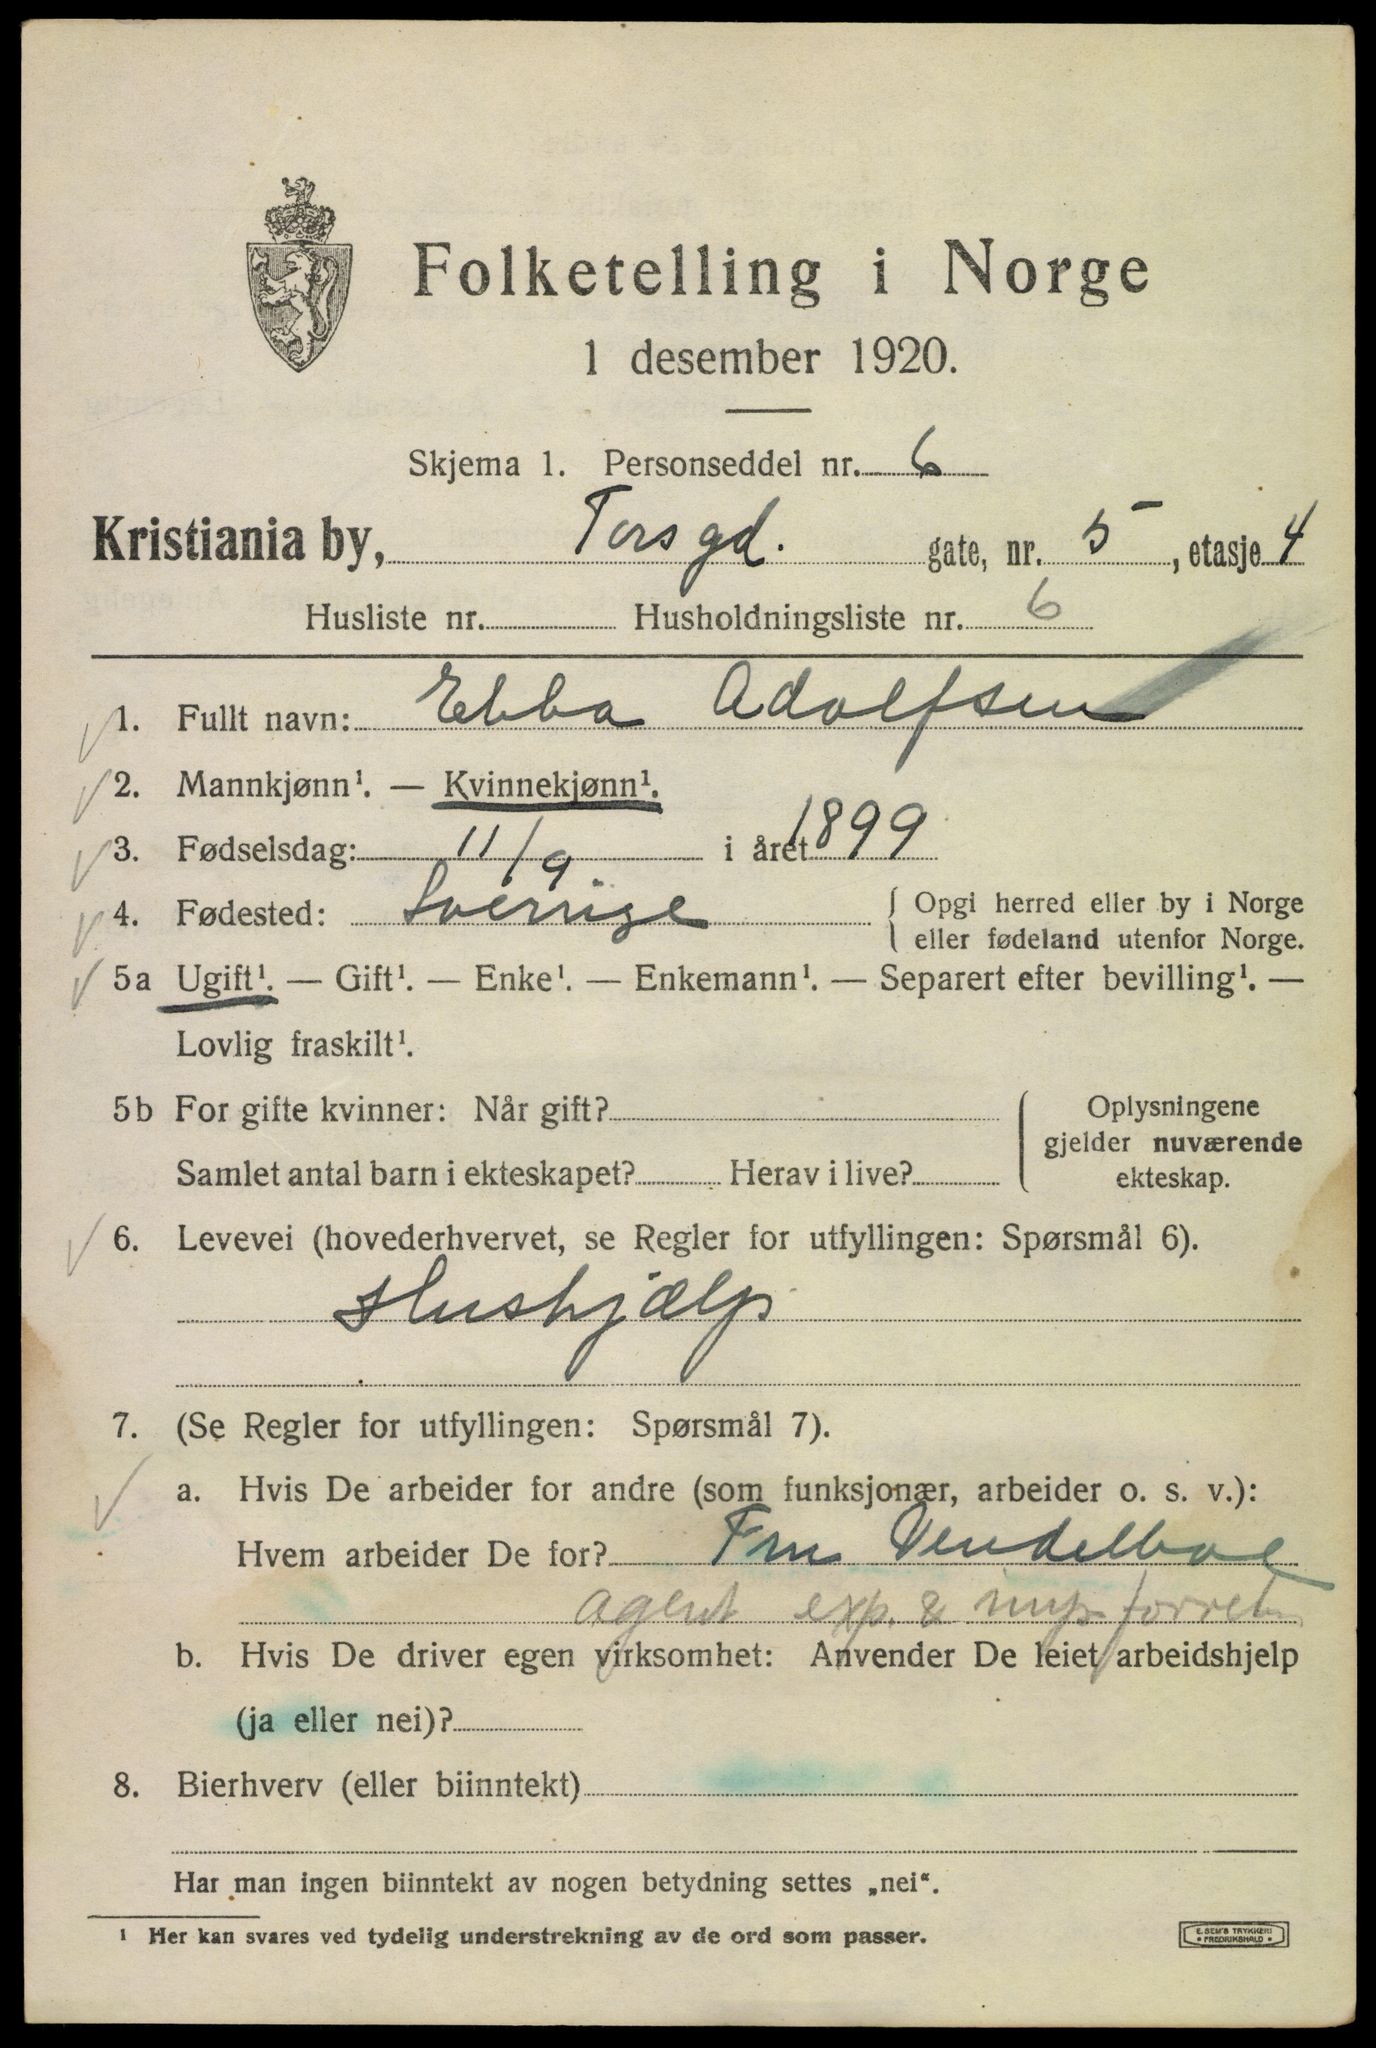 Folketelling i Norge
1 desember 1920.
Skjema 1. Personseddel nr. 6
Kristiania by, Torsgd. gate, nr. 5, etasje 4
Husliste nr. Husholdningsliste nr. 6
1. Fullt navn: Ebba Adolfsen
2. Mannkjønn¹. — Kvinnekjønn¹.
3. Fødselsdag: 11/9 i året 1899
4. Fødested: Sverrige { Opgi herred eller by i Norge
eller fødeland utenfor Norge.
5a Ugift¹. — Gift¹. — Enke¹. — Enkemann¹. — Separert efter bevilling¹. —
Lovlig fraskilt¹.
5b For gifte kvinner: Når gift? { Oplysningene
gjelder nuværende
Samlet antal barn i ekteskapet? Herav i live? ekteskap.
6. Levevei (hovederhvervet, se Regler for utfyllingen: Spørsmål 6).
Hushjælp
7. (Se Regler for utfyllingen: Spørsmål 7).
a. Hvis De arbeider for andre (som funksjonær, arbeider o. s. v.):
Hvem arbeider De for? Fru Vendelboe
agent exp. & imp. forretn
b. Hvis De driver egen virksomhet: Anvender De leiet arbeidshjelp
(ja eller nei)?
8. Bierhverv (eller biinntekt)
Har man ingen biinntekt av nogen betydning settes „nei“.
¹ Her kan svares ved tydelig understrekning av de ord som passer.
E. SEM'S TRYKKERI
• FREDRIKSHALD •